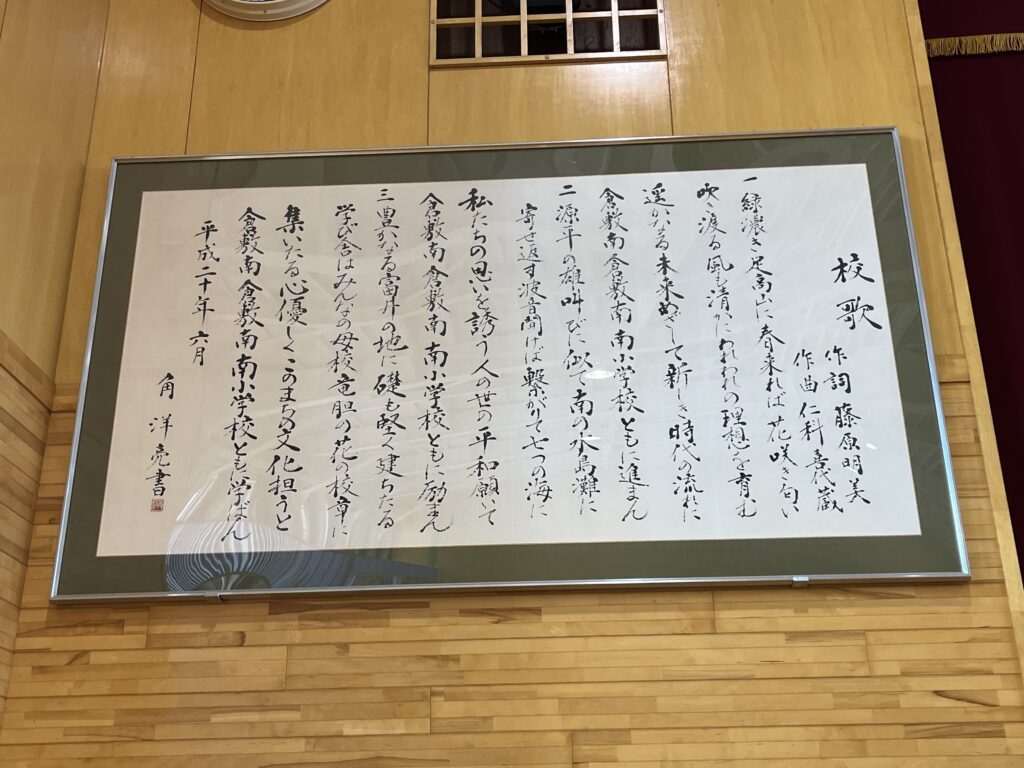 校歌
作詞 藤原明美
作曲 仁科喜代蔵
一 緑濃き足高山に春来れば 花咲き匂い
吹き渡る風も清かにわれわれの理想を育む
遥かなる未来めざして新しき時代の流れに
倉敷南倉敷南 南小学校ともに進まん
二 源平の雄叫びに似て南の水島灘に
寄せ返す波音聞けば繋がりて七つの海に
私たちの思いを誘う人の世の平和願いて
倉敷南倉敷南 南小学校ともに励まん
三 豊かなる富井の地に礎も堅く建ちたる
学び舎はみんなの母校竜胆の花の校章に
集いたる心優しくこのまちの文化担うと
倉敷南倉敷南 南小学校とも学ばん
平成二十年 六月
角 洋亮書